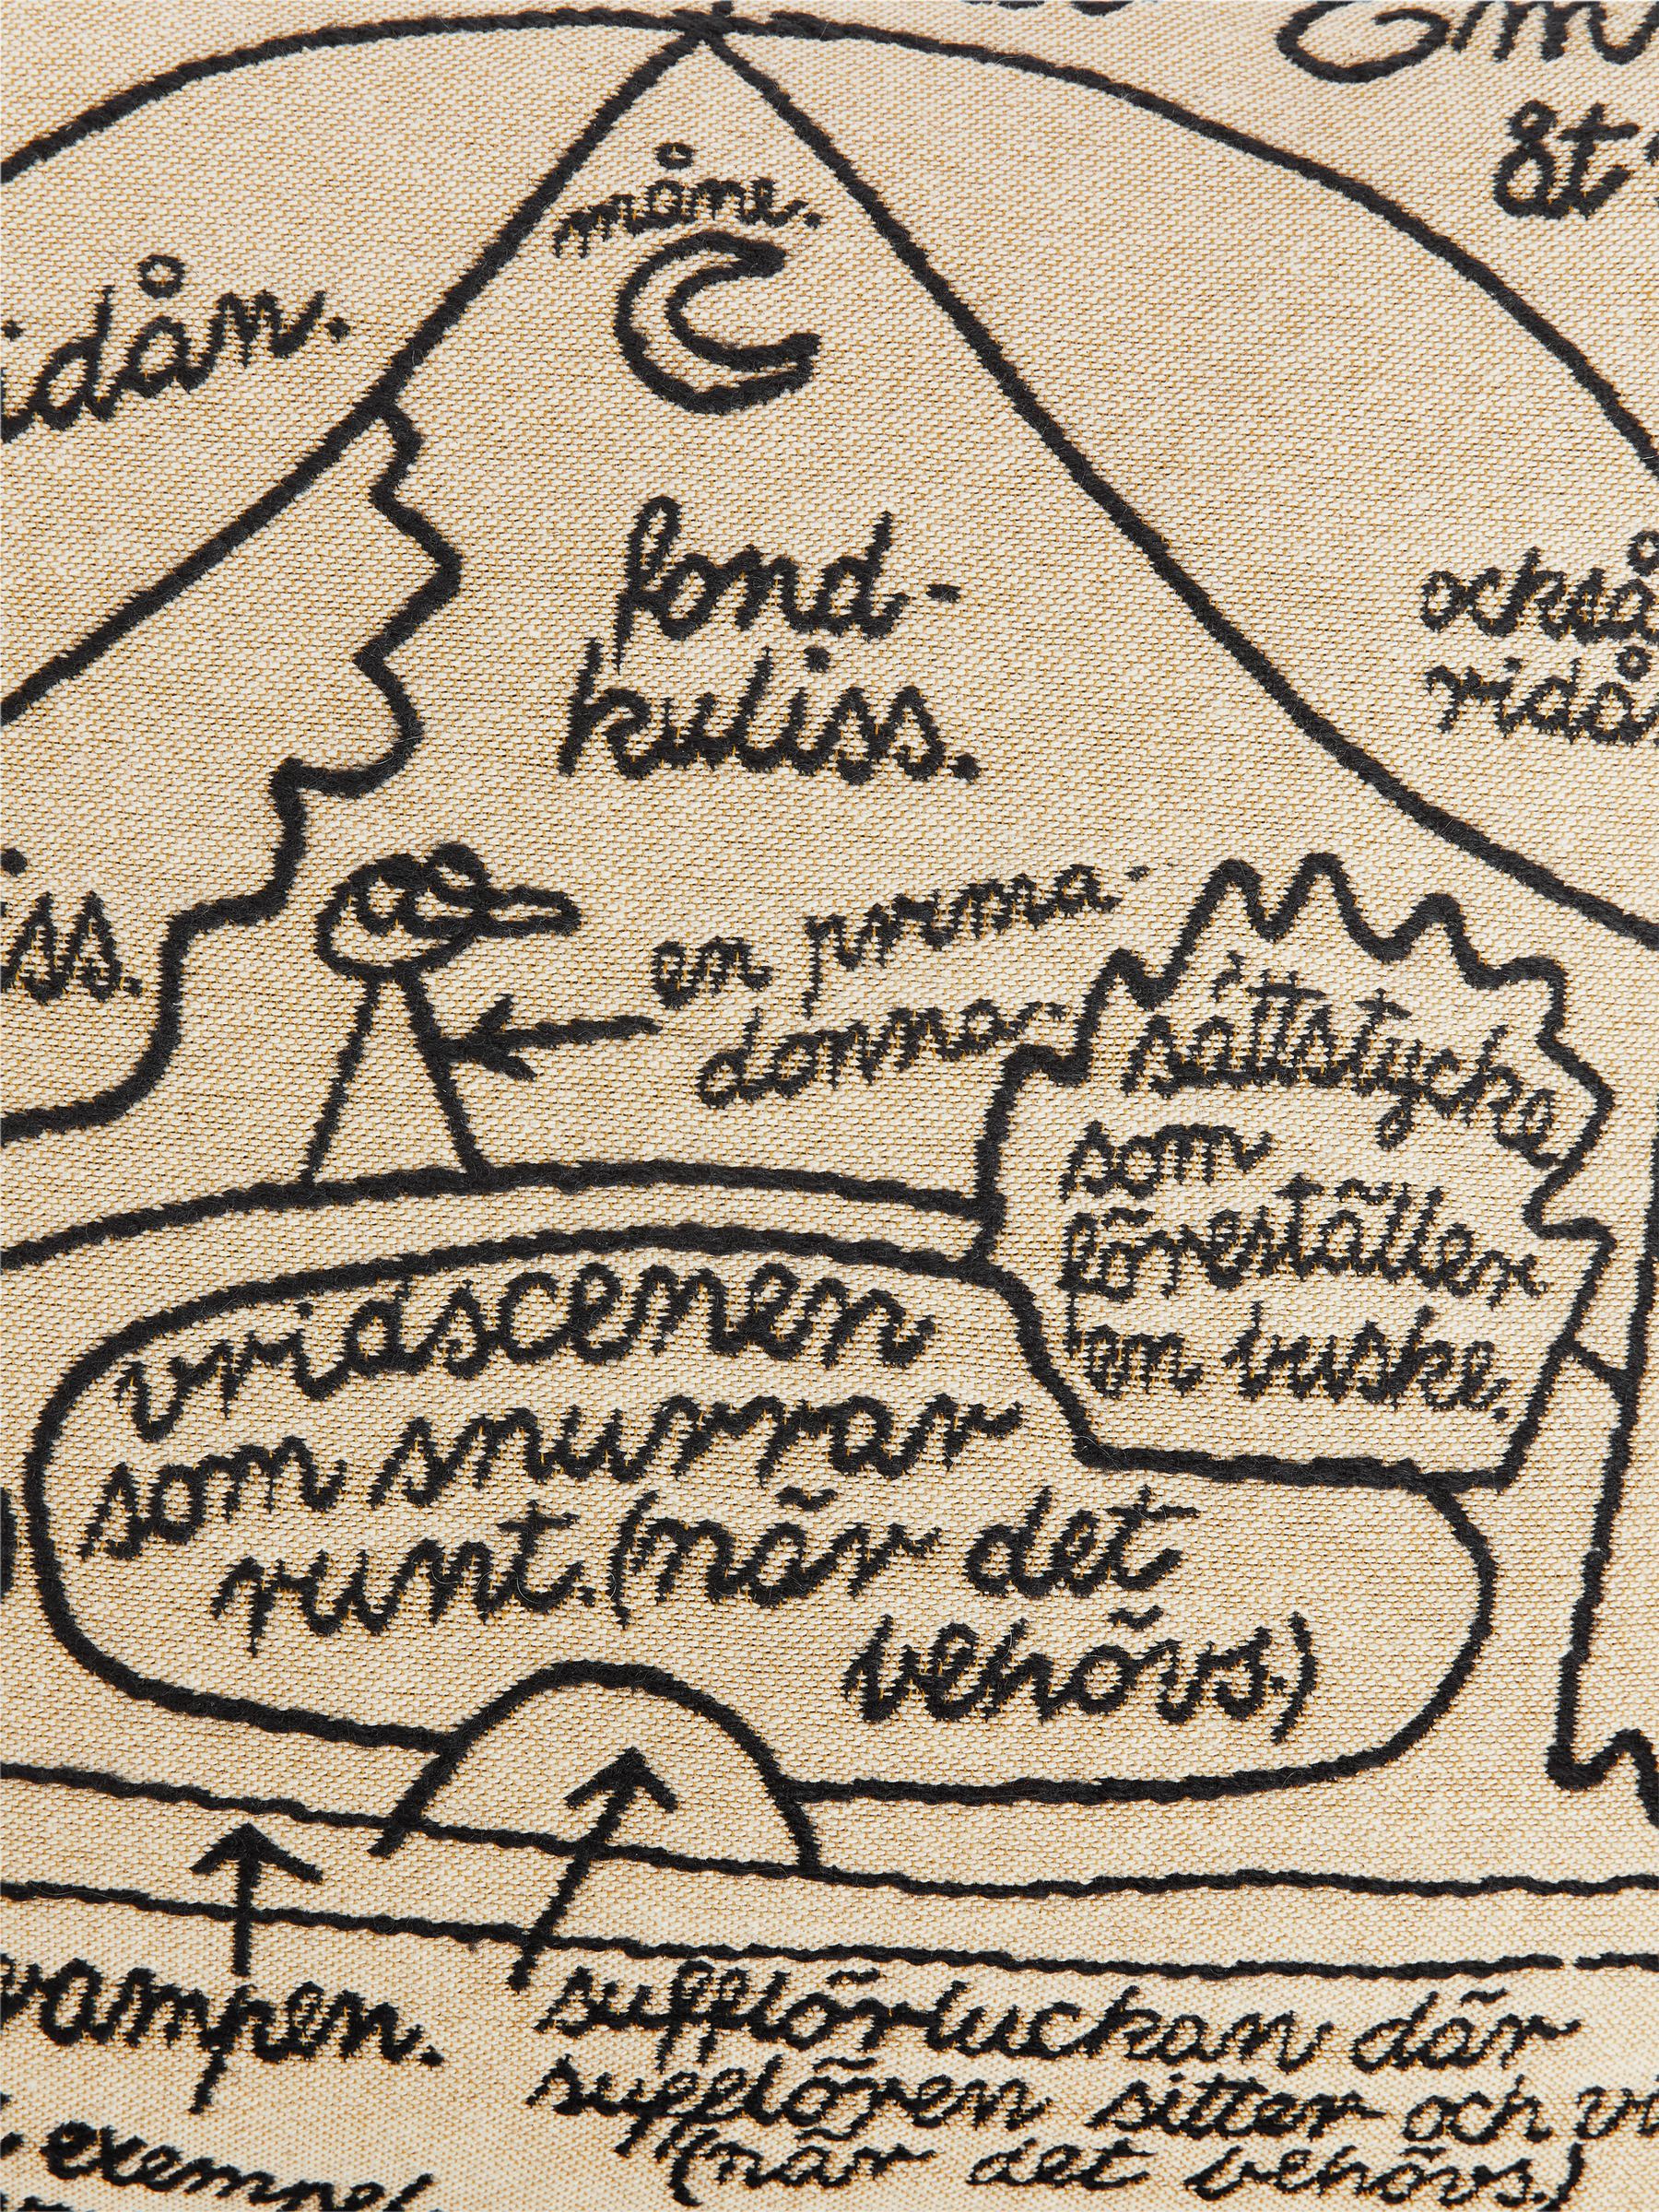 måne.
fond-
kuliss.
också
en prima-
donna.
sättstycke
som
föreställer
en buske.
vridscenen
som snurrar
runt. (när det
behövs.)
sufflörluckan där
sufflören sitter och
(när det behövs.)